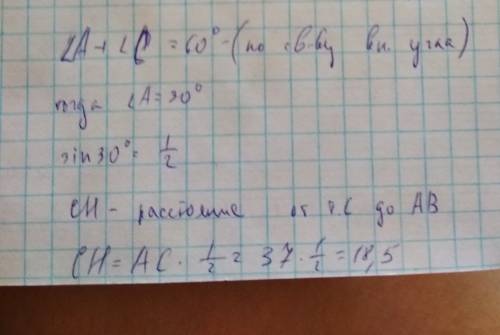 ∠A + ∠C = 60° - (по св-ву вн. угла)
тогда ∠A = 30°
sin 30° = 1/2
CH - расстояние от т. C до AB
CH = AC · 1/2 = 37 · 1/2 = 18,5